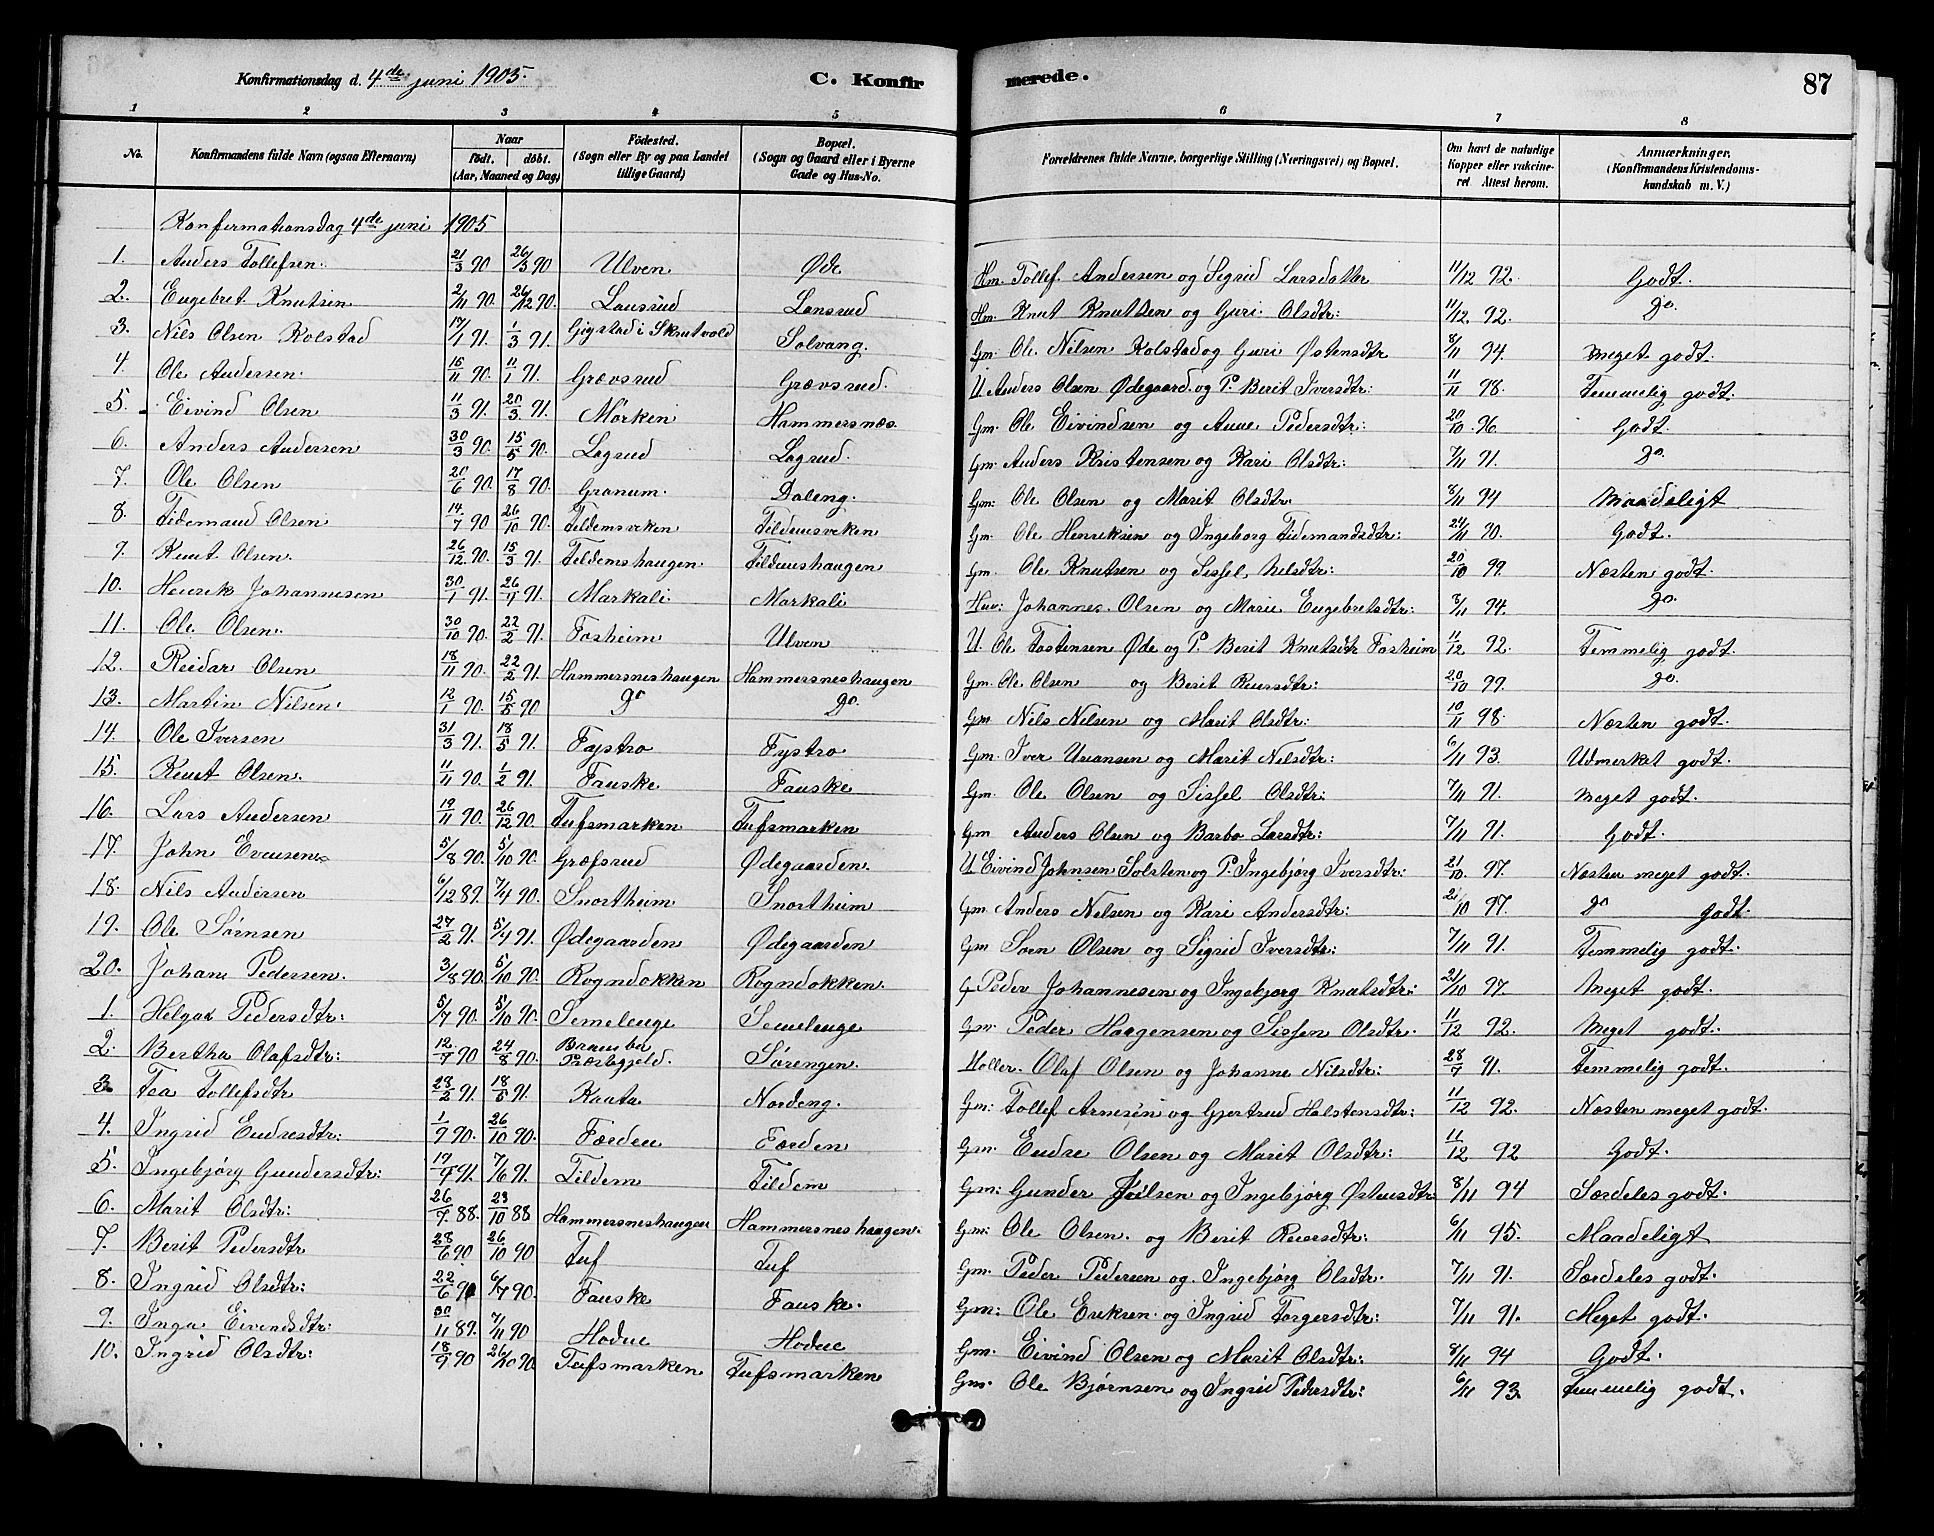 Konfirmationsdag d. 4de juni 1905.
C. Konfirmerede.
87
1 2 3 4 5 6 7 8
No.
Konfirmandens fulde Navn (ogsaa Efternavn)
Naar
födt. döbt.
(Aar, Maaned og Dag)
Födested.
(Sogn eller By og paa Landet tillige Gaard)
Bopæl.
(Sogn og Gaard eller i Byerne Gade og Hus-No.
Forældrenes fulde Navne, borgerlige Stilling (Næringsvei) og Bopæl.
Om havt de naturlige Kopper eller vakcineret. Attest herom.
Anmærkninger.
(Konfirmandens Kristendomskundskab m. V.)
Konfirmationsdag 4de juni 1905
1. Anders Tollefsen. 21/3 90 26/3 90 Ulven Øde Hm. Tollef Andersen og Sigrid Larsdatter 11/12 92. Godt.
2. Engebret Knutsen 2/11 90. 26/12 90. Lansrud Lansrud Hm. Knut Knutsen og Guri Olsdtr: 11/12 92. Do.
3. Nils Olsen Kolstad 17/1 91. 1/3 91. Gigstad i Skrutvold Solvang. Gm. Ole Nilsen Kolstad og Guri Østensdtr 8/11 94. Meget godt.
4. Ole Andersen. 15/11 90. 11/1 91. Grævsrud Grævsrud. U. Anders Olsen Ødegaard og P. Berit Iversdtr: 11/11 98. Temmelig godt.
5. Eivind Olsen 11/3 91. 20/3 91. Mørken Hammersnæs. Gm. Ole Eivindsen og Anne Pedersdtr: 20/10 96. Godt.
6. Anders Andersen 30/3 90. 15/5 90. Lagrud Lagrud. Gm. Anders Kristensen og Kari Olsdtr: 7/11 91. Do.
7. Ole Olsen 20/6 90. 17/8 90. Granum. Daleng. Gm: Ole Olsen og Marit Olsdtr. 8/11 94 Maadeligt
8. Tidemand Olsen 14/7 90 26/10 90. Tildemsveken Tildemsveken Gm. Ole Henriksen og Ingeborg Tidemandsdtr: 24/11 90. Godt.
9. Knut Olsen. 26/12 90. 15/3 91. Tildemshaugen Tildemshaugen Gm. Ole Knutsen og Sissel Nilsdtr: 20/10 99. Næsten godt.
10. Henrik Johannesen 30/1 91. 26/4 91. Markali Markali Huv: Johannes Olsen og Marie Engebretsdtr: 3/11 94. Do.
11. Ole Olsen. 30/10 90. 22/2 91. Fosheim Ulven U. Ole Tostensen Øde og P. Berit Knutsdtr Fosheim 11/12 92. Temmelig godt.
12. Reidar Olsen 18/11 90. 22/2 91. Hammersneshaugen Hammersneshaugen Gm. Ole Olsen og Berit Reiersdtr: 20/10 99. Do.
13. Martin Nilsen. 12/1 90. 15/5 90 Do Do. Gm Nils Nilsen og Marit Olsdtr: 10/11 98. Næsten godt.
14. Ole Iversen 31/3 91. 18/5 91. Fystro Fystro Gm. Iver Unansen og Marit Nilsdtr: 6/11 93. Udmerket godt.
15. Knut Olsen. 11/11 90. 1/2 91 Fauske Fauske Gm. Ole Olsen og Sissel Olsdtr: 7/11 91. Meget godt.
16. Lars Andersen 19/11 90. 26/12 90. Tufsmarken Tufsmarken Gm Anders Olsen og Barbo Larsdtr: 7/11 91. Godt.
17. John Evensen 5/8 90. 5/10 90. Græfsrud Ødegaarden. U. Eivind Johnsen Solsten og P. Ingebjørg Iversdtr: 21/10 97. Næsten meget godt.
18. Nils Andersen 6/12 89. 7/4 90. Snortheim Snortheim Gm. Anders Nilsen og Kari Andersdtr: 21/10 97. Do godt.
19. Ole Sørnsen 27/2 91. 5/4 91. Ødegaarden Ødegaarden Gm Søen Olsen og Sigrid Iversdtr: 7/11 91. Temmelig godt.
20. Johan Pedersen. 3/8 90. 5/10 90. Rogndokken Rogndokken. G Peder Johannesen og Ingebjørg Knutsdtr: 21/10 97. Meget godt.
1. Helga Pedersdtr: 5/7 90. 5/10 90. Semelenge Semelenge Gm: Peder Haagensen og Sissen Olsdtr. 11/12 92. Meget godt.
2. Bertha Olafsdtr: 12/7 90 24/8 90. Præstegjeld. Sørengen. Møller. Olaf Olsen og Johanne Nilsdtr: 28/7 91. Temmelig godt.
3. Tea Tollefsdtr 23/2 91. 18/5 91. Kaata Nordeng. Gm: Tollef Arnesen og Gjertrud Halstensdtr: 11/12 92. Næsten meget godt.
4. Ingrid Endresdtr: 1/9 90. 26/10 90. Færden Færden Gm. Endre Olsen og Marit Olsdtr: 11/12 92 Godt.
5. Ingebjørg Gundersdtr: 91. 7/6 91. Tildem Tildem Gm: Gunder og Ingebjørg Østensdtr: 8/11 94 Særdeles godt.
6. Marit Olsdtr: 26/7 88. 23/10 88 Hammersneshaugen Hammersneshaugen. Gm: Ole Olsen. og Berit Reiersdtr: 6/11 95. Maadeligt
7. Berit Pedersdtr 28/6 90. 26/10 90 Tuf Tuf Gm. Peder Pedersen og Ingebjørg Olsdtr. 7/11 91. Særdeles godt.
8. Ingrid Olsdtr: 22/6 90 6/7 90. Fauske Fauske. Gm: Ole Eriksen og Ingrid Torgersdtr: 7/11 91. Meget godt.
9. Inga Eivindsdtr: 30/11 89. 7/11 90 Hodne Hodne Gm. Eivind Olsen og Marit Olsdtr: 8/11 94 Godt.
10. Ingrid Olsdtr: 18/9 90 26/10 90. Tufsmarken Tufsmarken Gm. Ole Bjørnsen og Ingrid Pedersdtr: 6/11 93. Temmelig godt.